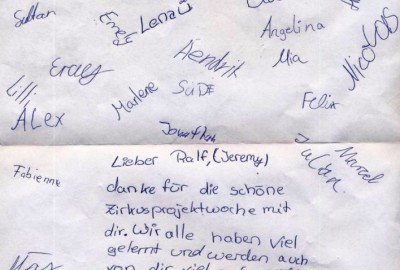 Sultan
Emely
Lenad
Angelina
Mia
Nicolas
Hendrik
Eray
Lilli
Marlene
SUDE
Felix
ALex
Jonathan
Julian
Marcel
Lieber Ralf, (Jeremy)
Fabienne
danke für die schöne
Zirkusprojektwoche mit
dir. Wir alle haben viel
gelernt und werden auch
von dir viel